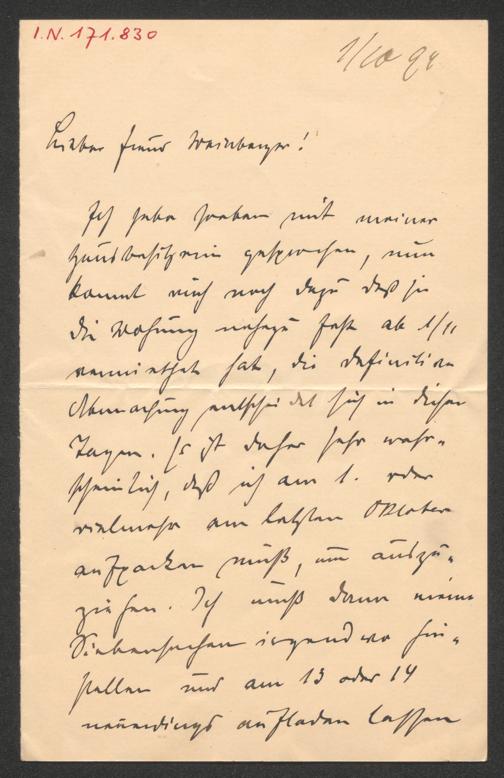 I.N. 171.830
1/10 94
Lieber Freund Weinberger!
Ich habe soeben mit meiner
Hausbesitzerin gesprochen, nun
kommt auch noch dazu daß sie
die Wohnung nahezu fest ab 1/11
vermiethet hat, die definitive
Abmachung entscheidet sich in diesen
Tagen. Es ist daher sehr wahr-
scheinlich, daß ich am 1. oder
vielmehr am letzten Oktober
aufpacken muß, um auszu-
ziehen. Ich muß dann meine
Siebensachen irgendwo hin-
stellen und am 13 oder 14
neuerdings aufladen lassen